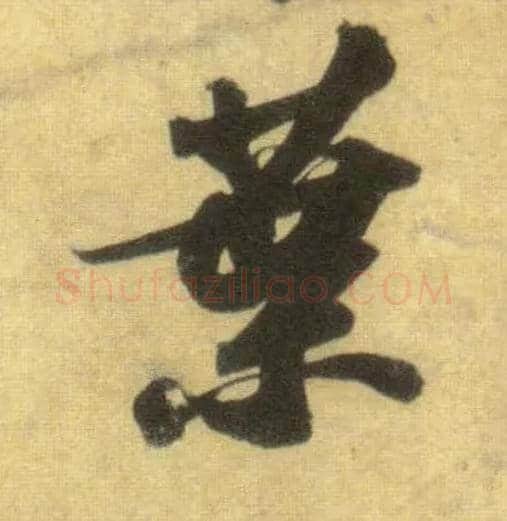 葉
Shufaziliao.COM